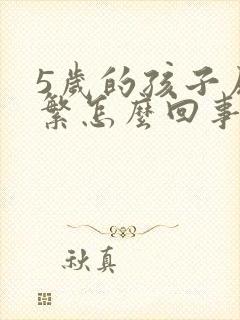 5歲的孩子
繁怎麼回事
秋真